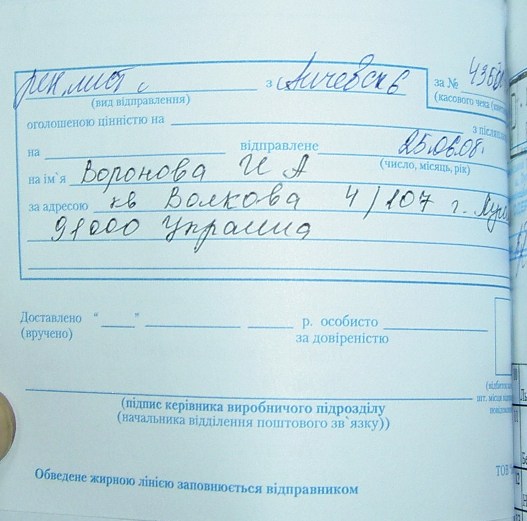 рек лист с з Алчевск 6 за № 4350
(вид відправлення) (касового чека
оголошеною цінністю на з після
на відправлене 25.06.08.
(число, місяць, рік)
на ім'я Воронова И А
за адресою кв Волкова 4/107 г.
91000 Украина
Доставлено " " р. особисто
(вручено) за довіреністю
(підпис керівника виробничого підрозділу
(начальника відділення поштового зв'язку))
шт. місця
ТОВ
Обведене жирною лінією заповнюється відправником